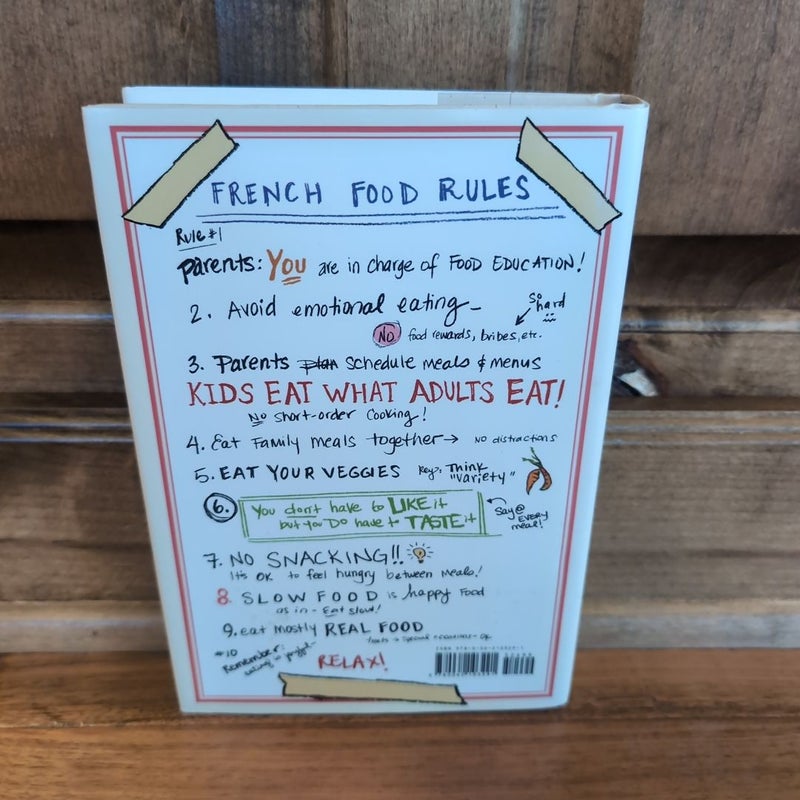 FRENCH FOOD RULES
Rule #1
Parents: You are in charge of FOOD EDUCATION!
2. Avoid emotional eating -
So hard
NO food rewards, bribes, etc.
3. Parents plan schedule meals & menus
KIDS EAT WHAT ADULTS EAT!
No short-order cooking!
4. Eat Family meals together → NO distractions
5. EAT YOUR VEGGIES Key: Think
"variety"
6. You don't have to LIKE it
but you DO have to TASTE it
Say @
EVERY
meal!
7. NO SNACKING!!
It's OK to feel hungry between meals!
8. SLOW FOOD is happy Food
as in - Eat slow!
9. eat mostly REAL FOOD
treats → special occasions - OK
#10
Remember:
eating is
RELAX!